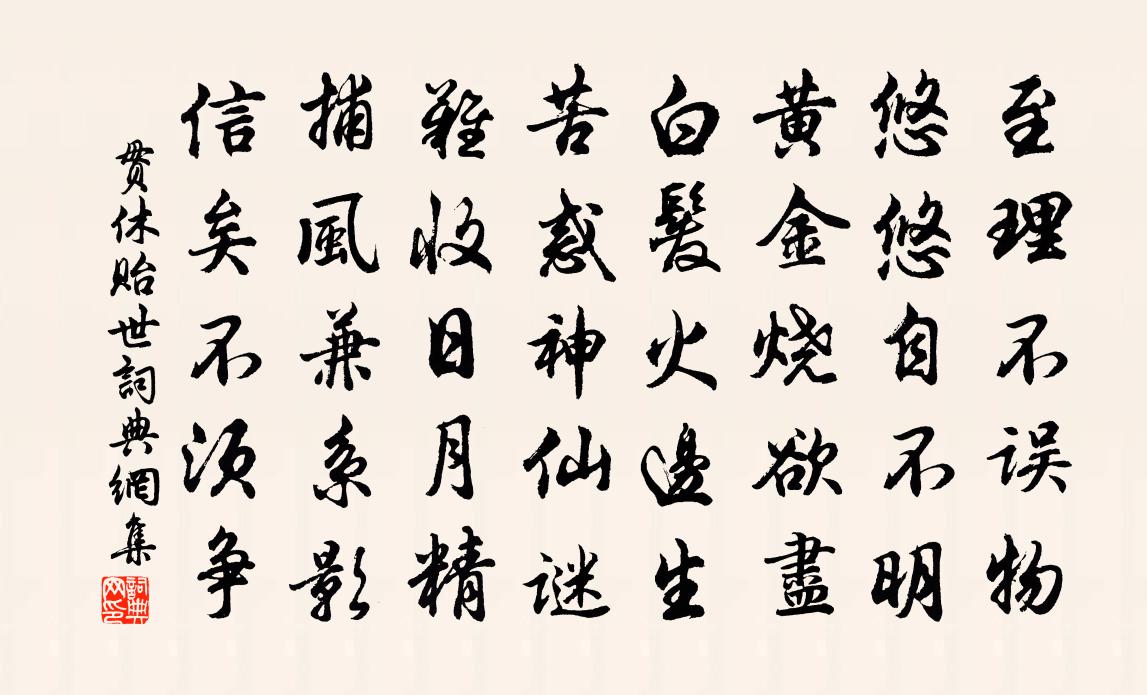 至理不误物
悠悠自不明
黄金烧欲盡
白髮火邊生
苦惑神仙谜
難收日月精
捕風兼系影
信矣不须争
貫休貽世詞典網集
詞典网印